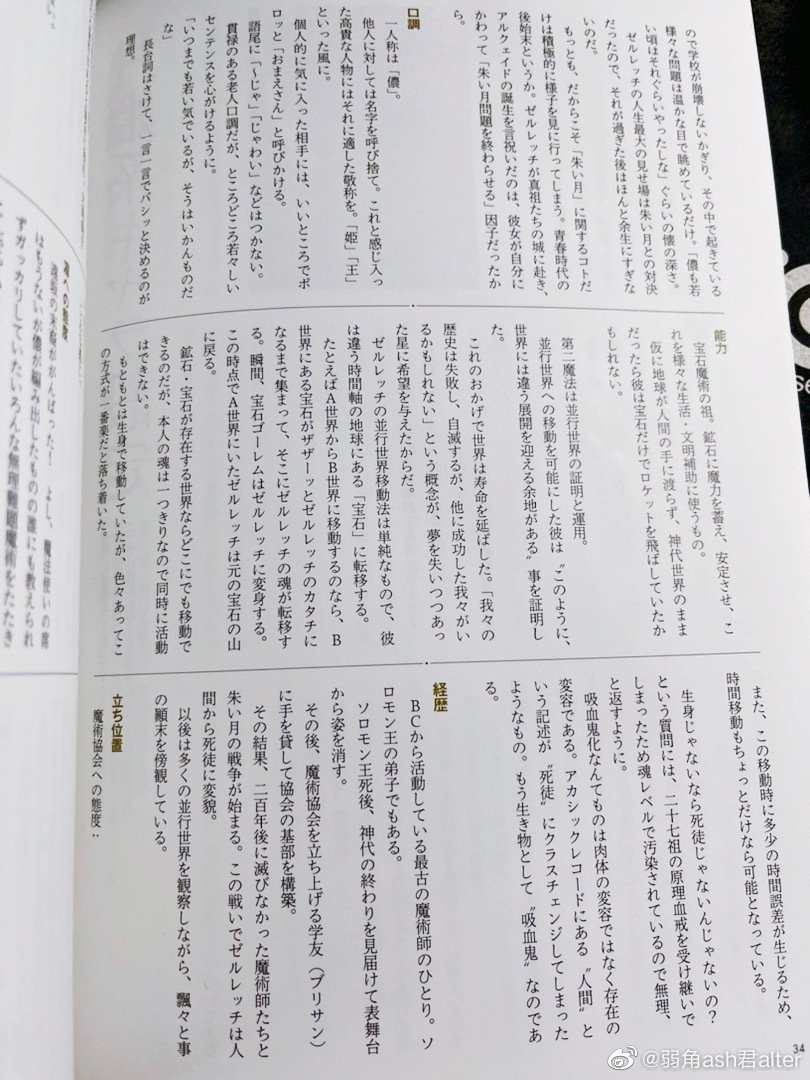 ので学校が崩壊しないかぎり、その中で起きている
様々な問題は温かな目で眺めているだけ。「儂も若
い頃はそれぐらいやったしな」ぐらいの懐の深さ。
ゼルレッチの人生最大の見せ場は朱い月との対決
だったので、それが過ぎた後はほんと余生にすぎな
いのだ。
もっとも、だからこそ「朱い月」に関するコトだ
けは積極的に様子を見に行ってしまう。青春時代の
後始末というか。ゼルレッチが真祖たちの城に赴き、
アルクェイドの誕生を言祝いだのは、彼女が自分に
かわって「朱い月問題を終わらせる」因子だったか
ら。
口調
一人称は「儂」。
他人に対しては名字を呼び捨て。これと感じ入っ
た高貴な人物にはそれに適した敬称を。「姫」「王」
といった風に。
個人的に気に入った相手には、いいところでポ
ロッと「おまえさん」と呼びかける。
語尾に「〜じゃ」「じゃわい」などはつかない。
貫禄のある老人口調だが、ところどころ若々しい
センテンスを心がけるように。
「いつまでも若い気でいるが、そうはいかんものだ
な」
長台詞はさけて、一言一言でバシッと決めるのが
理想。
能力
宝石魔術の祖。鉱石に魔力を蓄え、安定させ、こ
れを様々な生活・文明補助に使うもの。
仮に地球が人間の手に渡らず、神代世界のまま
だったら彼は宝石だけでロケットを飛ばしていたか
もしれない。
第二魔法は並行世界の証明と運用。
並行世界への移動を可能にした彼は〝このように、
世界には違う展開を迎える余地がある〟事を証明し
た。
これのおかげで世界は寿命を延ばした。「我々の
歴史は失敗し、自滅するが、他に成功した我々がい
るかもしれない」という概念が、夢を失いつつあっ
た星に希望を与えたからだ。
ゼルレッチの並行世界移動法は単純なもので、彼
は違う時間軸の地球にある「宝石」に転移する。
たとえばA世界からB世界に移動するのなら、B
世界にある宝石がザザーッとゼルレッチのカタチに
なるまで集まって、そこにゼルレッチの魂が転移す
る。瞬間、宝石ゴーレムはゼルレッチに変身する。
この時点でA世界にいたゼルレッチは元の宝石の山
に戻る。
鉱石・宝石が存在する世界ならどこにでも移動で
きるのだが、本人の魂は一つきりなので同時に活動
はできない。
もともとは生身で移動していたが、色々あってこ
の方式が一番楽だと落ち着いた。
また、この移動時に多少の時間誤差が生じるため、
時間移動もちょっとだけなら可能となっている。
生身じゃないなら死徒じゃないんじゃないの？
という質問には、二十七祖の原理血戒を受け継いで
しまったため魂レベルで汚染されているので無理、
と返すように。
吸血鬼化なんてものは肉体の変容ではなく存在の
変容である。アカシックレコードにある〝人間〟と
いう記述が〝死徒〟にクラスチェンジしてしまった
ようなもの。もう生き物として〝吸血鬼〟なのであ
る。
経歴
BCから活動している最古の魔術師のひとり。ソ
ロモン王の弟子でもある。
ソロモン王死後、神代の終わりを見届けて表舞台
から姿を消す。
その後、魔術協会を立ち上げる学友（ブリサン）
に手を貸して協会の基部を構築。
その結果、二百年後に滅びなかった魔術師たちと
朱い月の戦争が始まる。この戦いでゼルレッチは人
間から死徒に変貌。
以後は多くの並行世界を観察しながら、飄々と事
の顛末を傍観している。
立ち位置
魔術協会への態度：
34
@弱角ash君alter